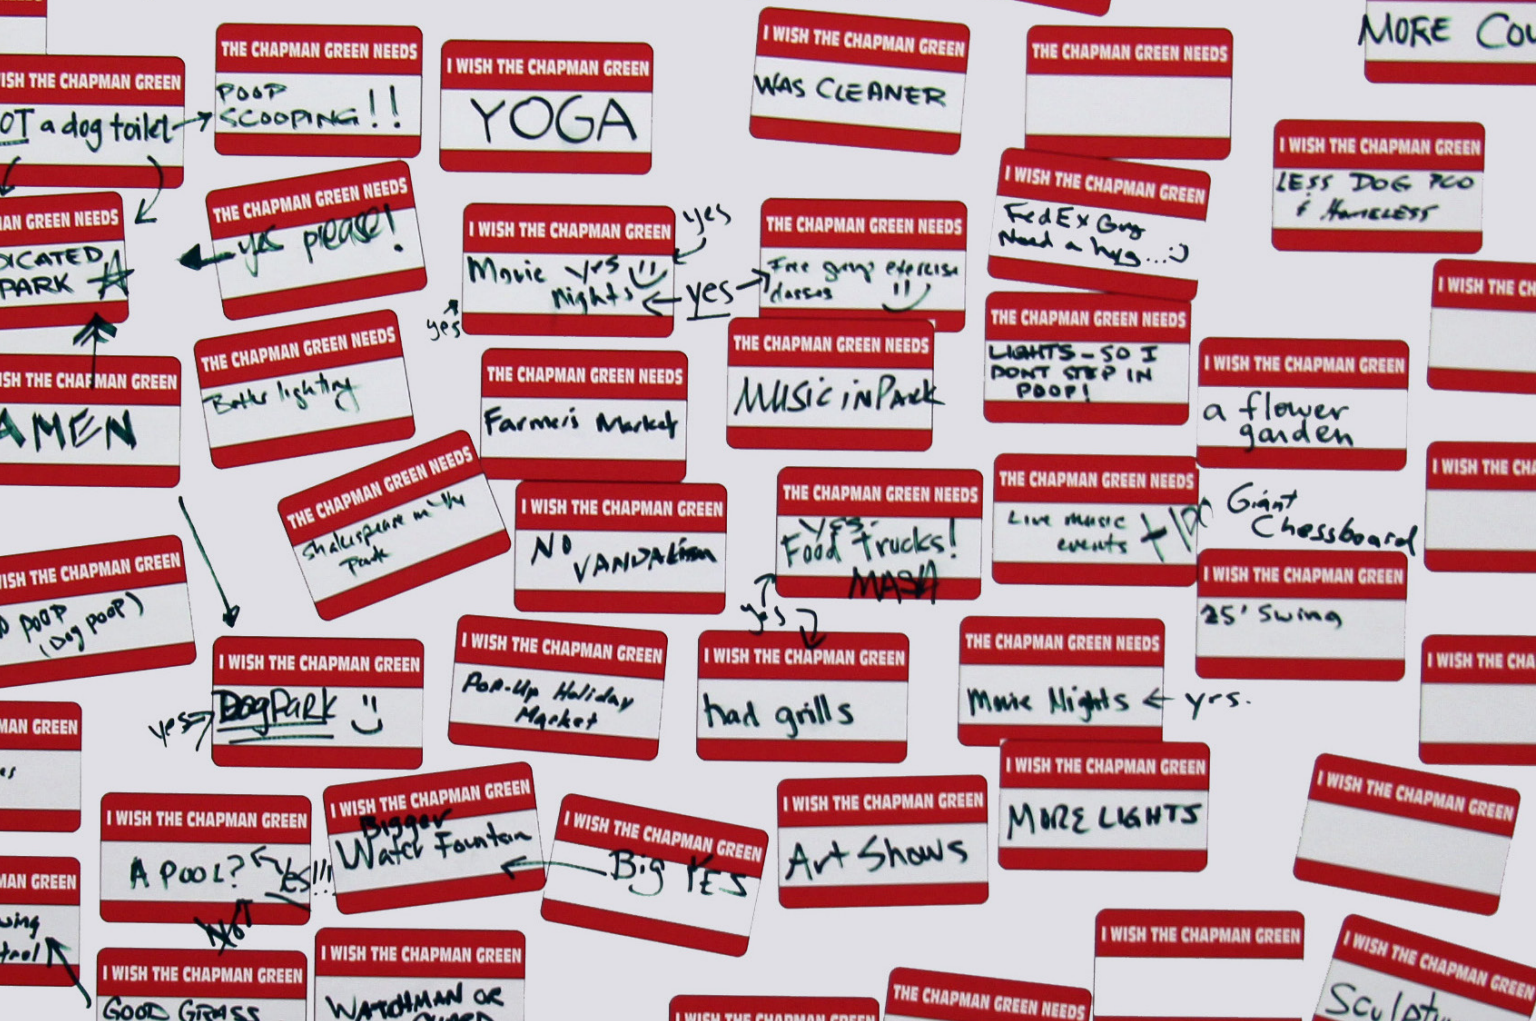 THE CHAPMAN GREEN NEEDS
POOP
SCOOPING!!
I WISH THE CHAPMAN GREEN
YOGA
I WISH THE CHAPMAN GREEN
WAS CLEANER
THE CHAPMAN GREEN NEEDS
MORE
THE CHAPMAN GREEN
a dog toilet
I WISH THE CHAPMAN GREEN
LESS DOG POO
& HOMELESS
GREEN NEEDS
PARK
THE CHAPMAN GREEN NEEDS
yes please!
I WISH THE CHAPMAN GREEN
Movie yes
Nights
yes
yes
yes
THE CHAPMAN GREEN NEEDS
Free group exercise
classes
I WISH THE CHAPMAN GREEN
FedEx Guy
Need a hug...:)
I WISH THE
THE CHAPMAN GREEN
AMEN
THE CHAPMAN GREEN NEEDS
Better lighting
THE CHAPMAN GREEN NEEDS
Farmer's Market
THE CHAPMAN GREEN NEEDS
MUSIC in PARK
THE CHAPMAN GREEN NEEDS
LIGHTS - SO I
DONT STEP IN
POOP!
I WISH THE CHAPMAN GREEN
a flower
garden
I WISH THE
THE CHAPMAN GREEN NEEDS
Shakespeare in the
Park
I WISH THE CHAPMAN GREEN
NO
VANDALism
THE CHAPMAN GREEN NEEDS
yes.
Food Trucks!
MASA
yes
THE CHAPMAN GREEN NEEDS
Live music
events
Giant
Chessboard
I WISH THE CHAPMAN GREEN
25' Swing
THE CHAPMAN GREEN
POOP
(Dog poop)
I WISH THE CHAPMAN GREEN
Dog PARK :)
yes
I WISH THE CHAPMAN GREEN
Pop-Up Holiday
Market
I WISH THE CHAPMAN GREEN
had grills
THE CHAPMAN GREEN NEEDS
Movie Nights ← yes.
I WISH THE
GREEN
I WISH THE CHAPMAN GREEN
A POOL?
YES!!!
NO
I WISH THE CHAPMAN GREEN
Bigger
Water Fountain
I WISH THE CHAPMAN GREEN
Big YES
I WISH THE CHAPMAN GREEN
Art Shows
I WISH THE CHAPMAN GREEN
MORE LIGHTS
I WISH THE CHAPMAN GREEN
GREEN
I WISH THE CHAPMAN GREEN
GOOD GRASS
I WISH THE CHAPMAN GREEN
WATCHMAN OR
I WISH THE CHAPMAN GREEN
THE CHAPMAN GREEN NEEDS
I WISH THE CHAPMAN GREEN
I WISH THE CHAPMAN GREEN